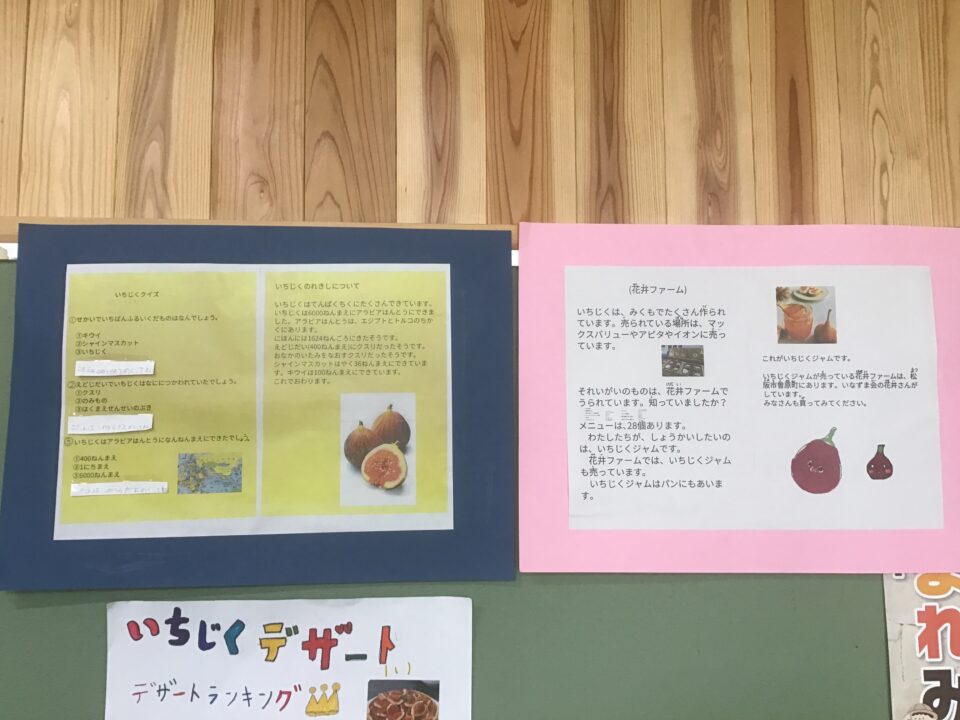 いちじくクイズ
①せかいでいちばんふるいくだものはなんでしょう。
①キウイ
②シャインマスカット
③いちじく
②えどじだいでいちじくはなににつかわれていたでしょう。
①クスリ
②のみもの
③はくまえせんせいのぶき
③いちじくはアラビアはんとうになんねんまえにできたでしょう。
①400ねんまえ
②1にちまえ
③6000ねんまえ
いちじくのれきしについて
いちじくはてんぱくちくにたくさんできています。
いちじくは6000ねんまえにアラビアはんとうにできま
した。アラビアはんとうは、エジプトとトルコのちか
くにあります。
にほんには1624ねんごろにきたそうです。
えどじだい(400ねんまえ)にクスリだったそうです。
おなかのいたみをなおすクスリだったそうです。
シャインマスカットはやく36ねんまえにできていま
す。キウイは100ねんまえにできています。
これでおわります。
(花井ファーム)
いちじくは、みくもでたくさん作られ
ています。売られている場所は、マッ
クスバリューやアピタやイオンに売っ
ています。
それいがいのものは、花井ファームで
うられています。知っていましたか？
メニューは、28個あります。
わたしたちが、しょうかいしたいの
は、いちじくジャムです。
花井ファームでは、いちじくジャム
も売っています。
いちじくジャムはパンにもあいま
す。
これがいちじくジャムです。
いちじくジャムが売っている花井ファームは、松
阪市曽原町にあります。いなずま会の花井さんが
しています。
みなさんも買ってみてください。
いちじくデザート
デザートランキング
よれみ